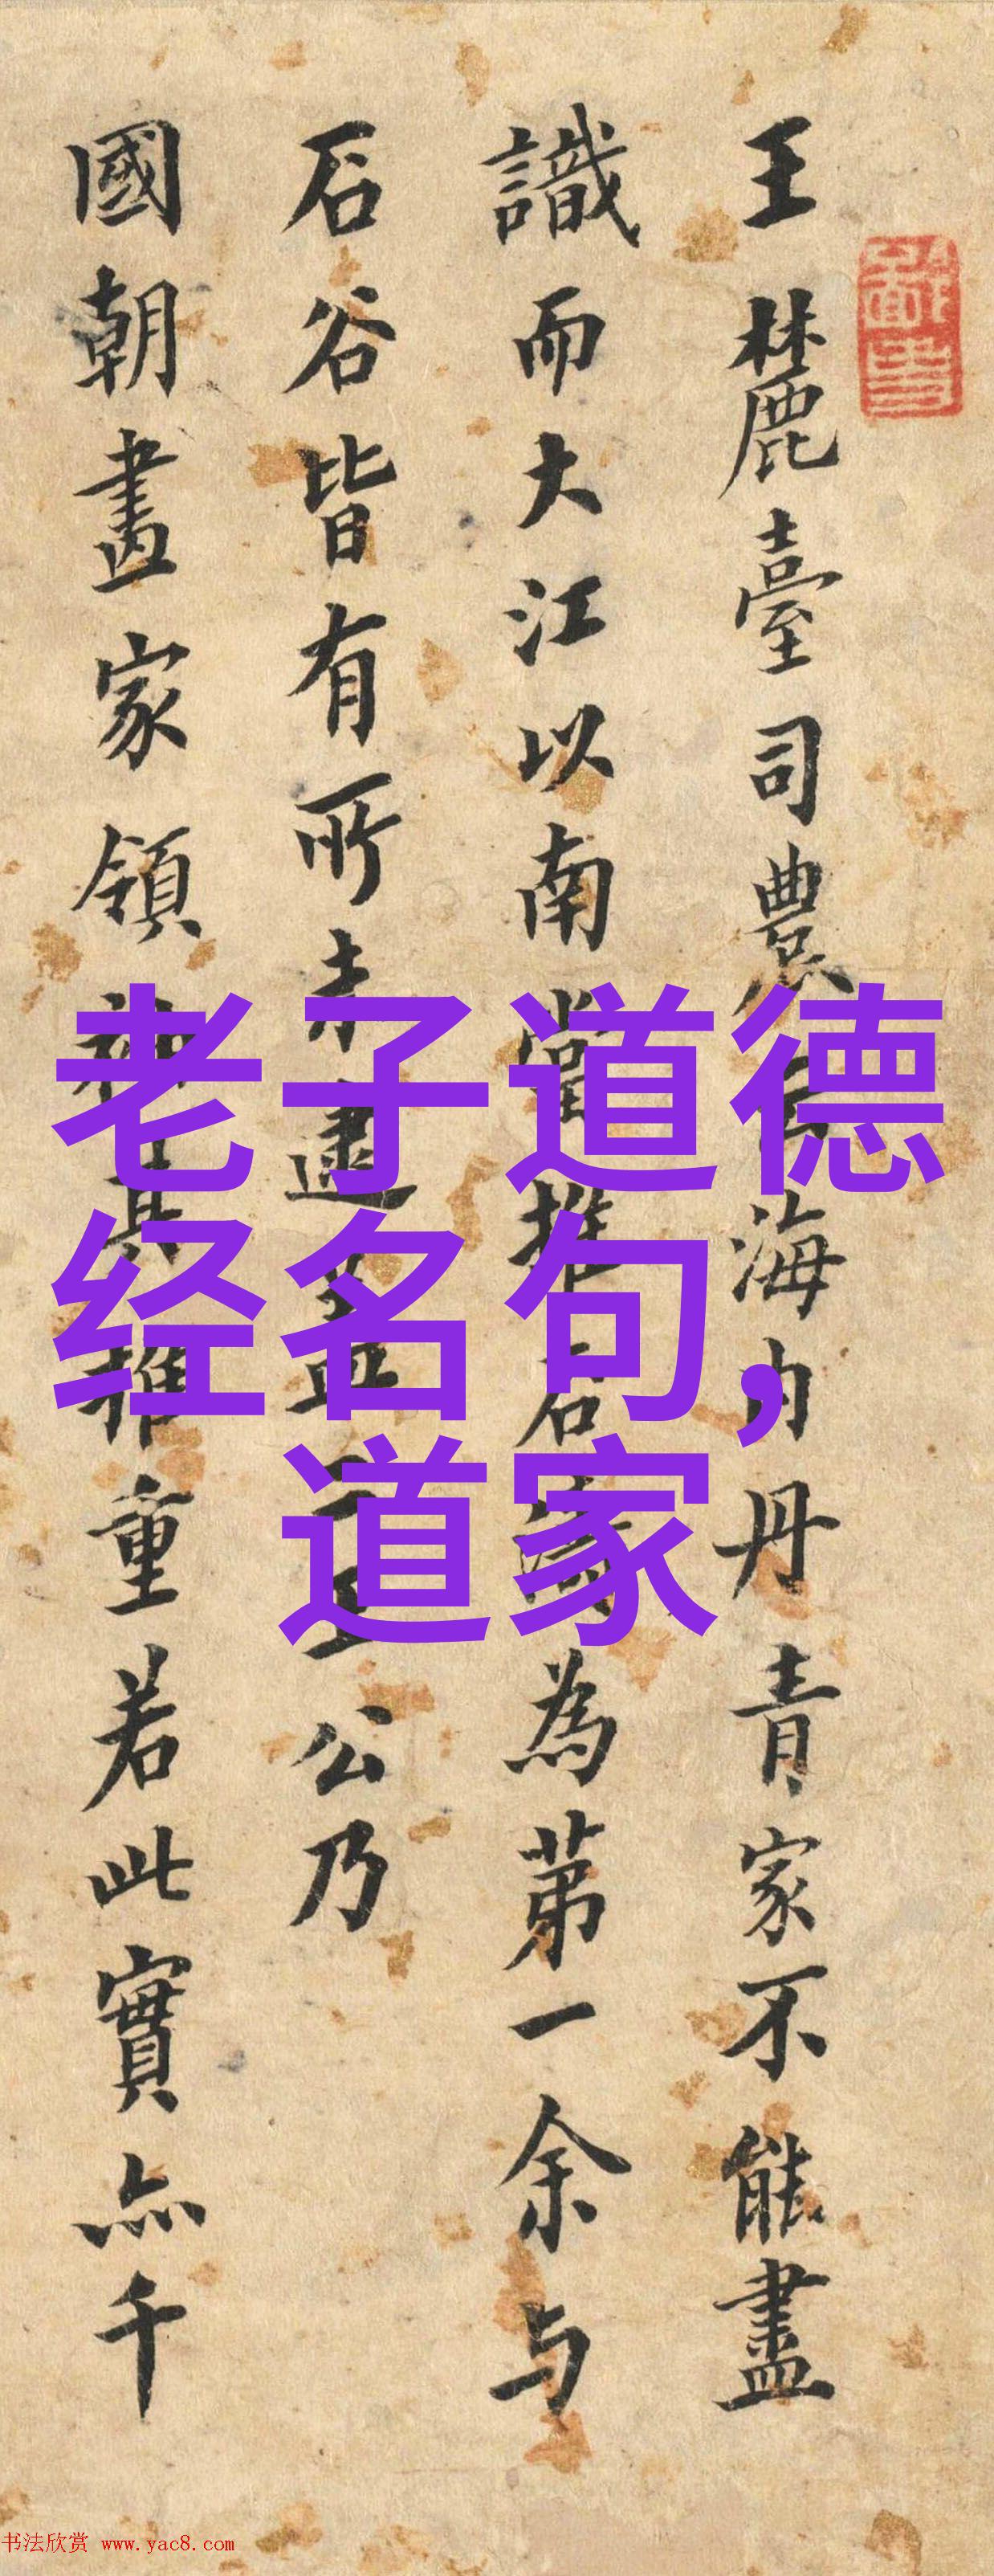 王麓臺司農海內丹青家不能盡
識而大江以南當推石濤為第一余与
石谷皆有所未逮蓋二王公乃
國朝畫家領袖其推重若此實亦千
老子道德
经名句，
道家
书法欣赏 www.yac8.com